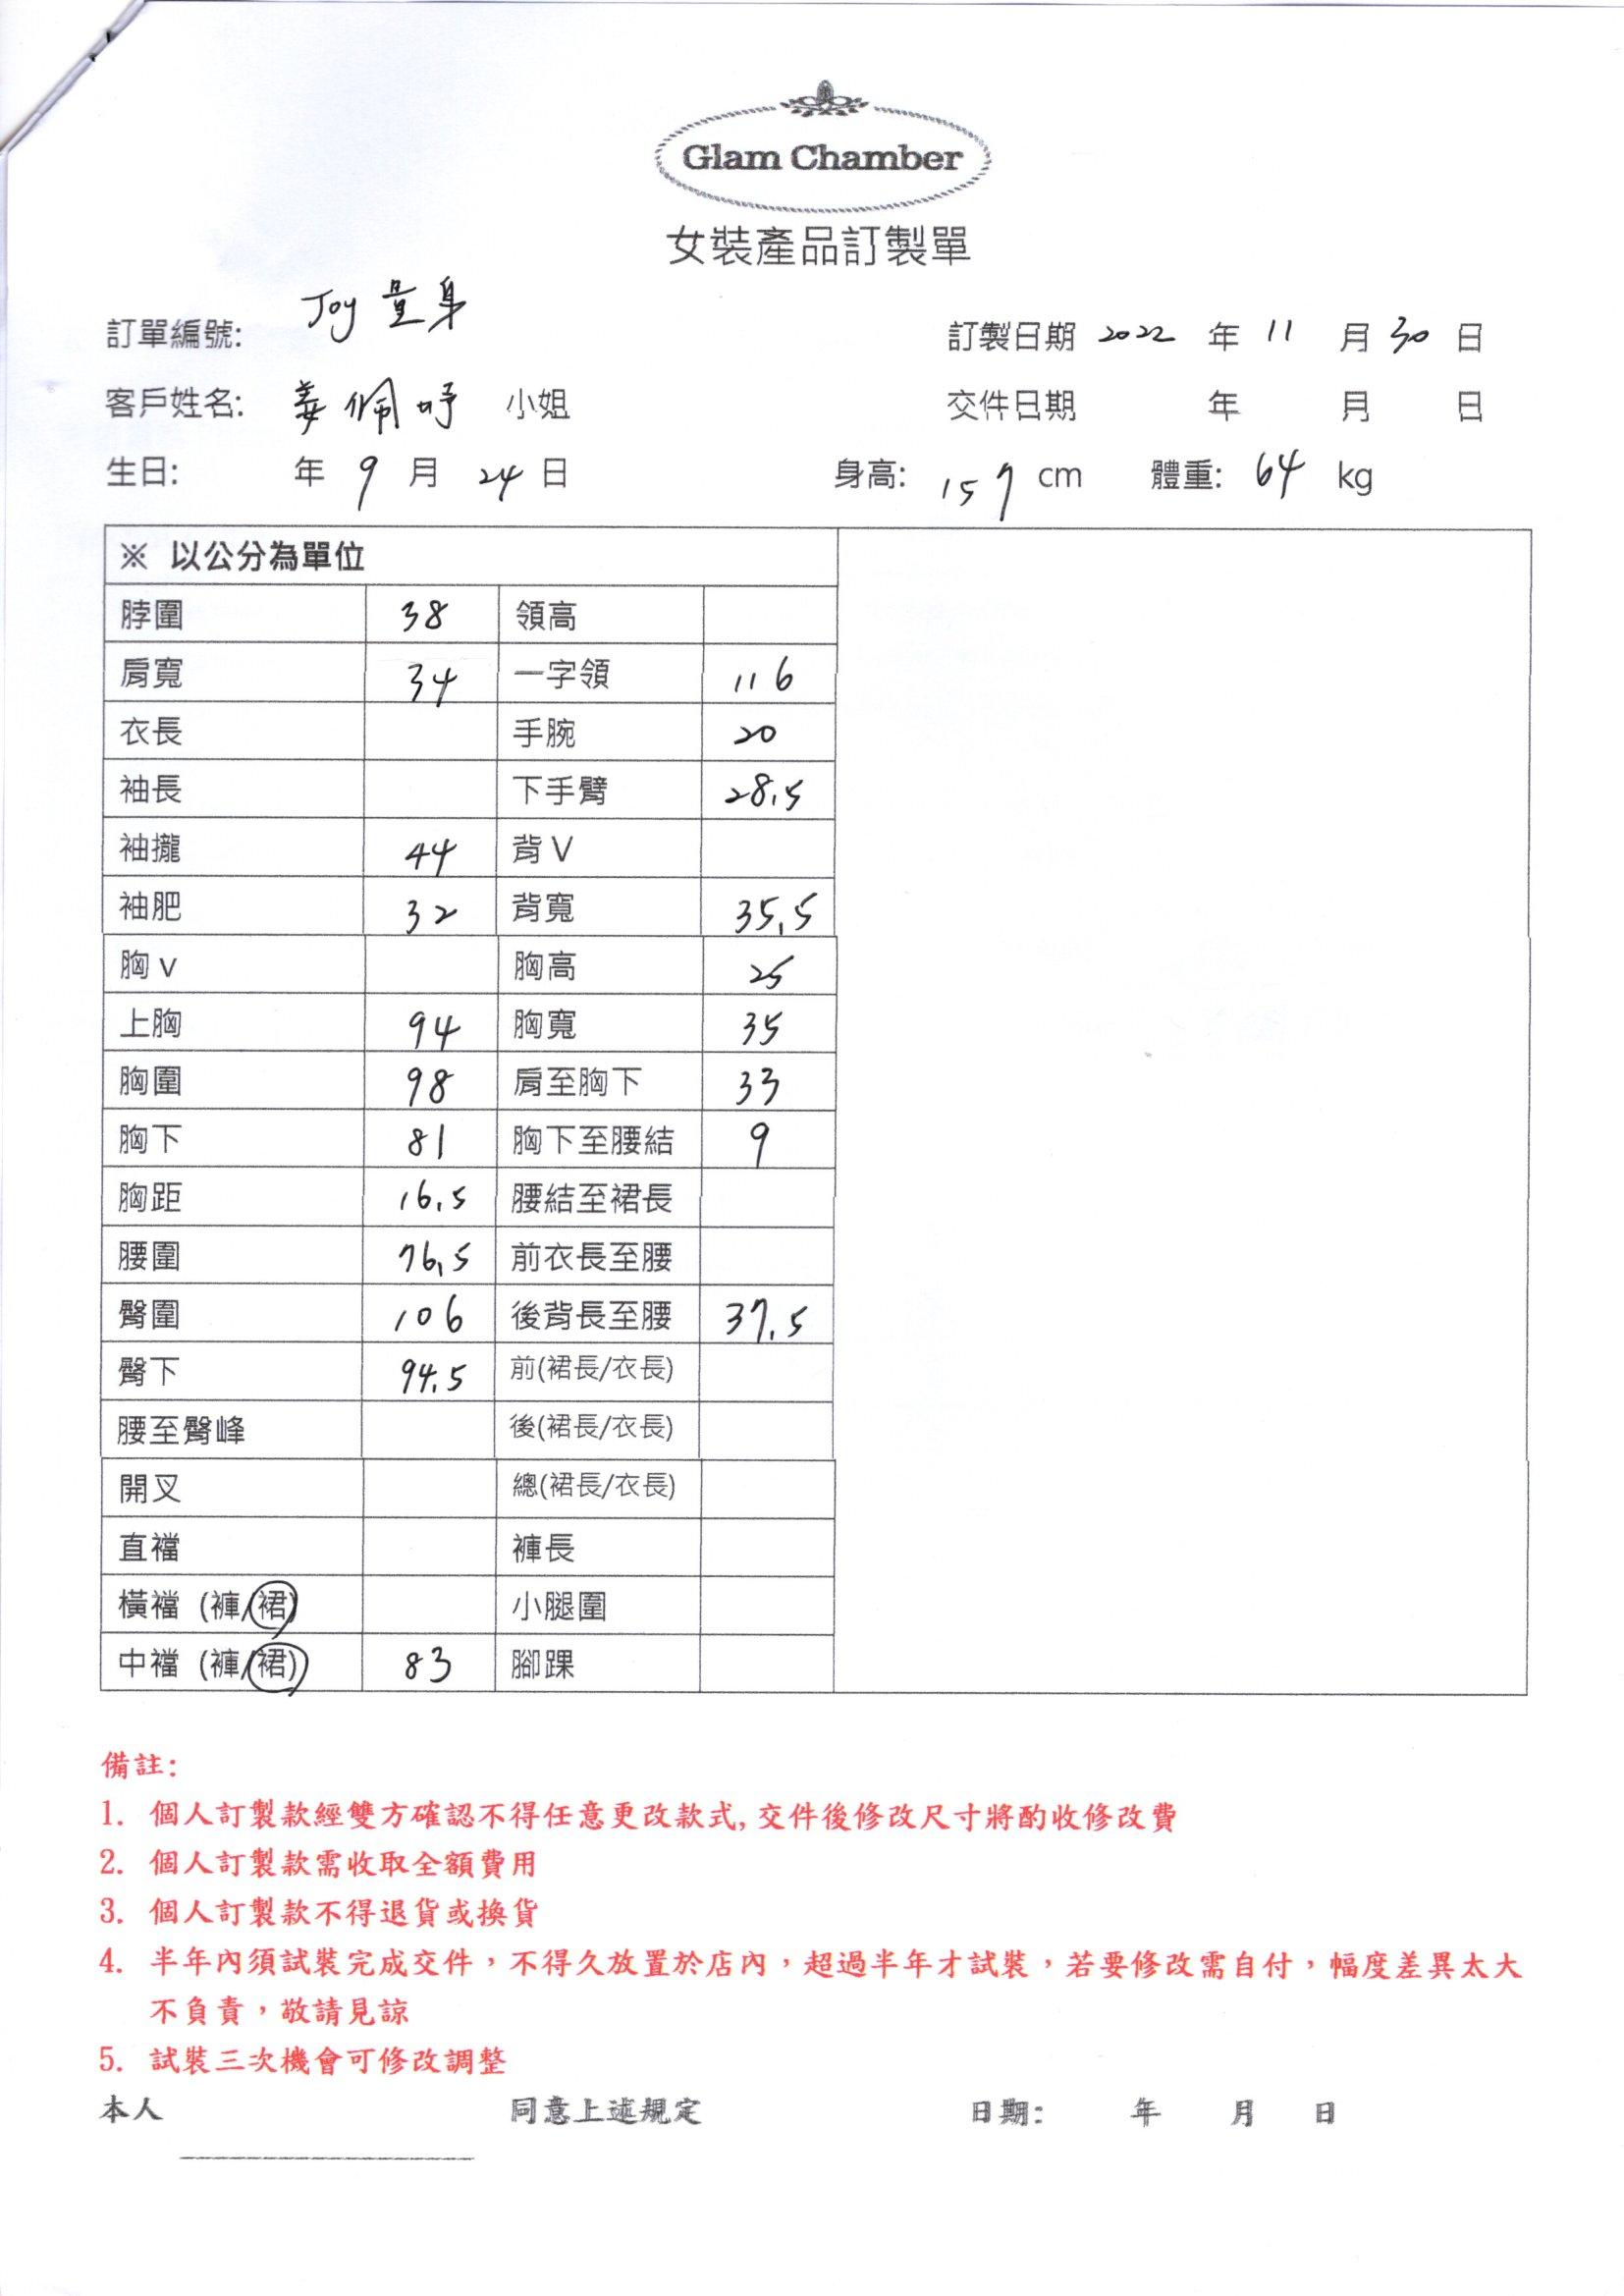 Glam Chamber
女裝產品訂製單
訂單編號: Joy 量身 訂製日期 2022 年 11 月 30 日
客戶姓名: 姜佩妤 小姐 交件日期 年 月 日
生日: 年 9 月 24 日 身高: 157 cm 體重: 64 kg
※ 以公分為單位
脖圍 38 領高
肩寬 34 一字領 116
衣長 手腕 20
袖長 下手臂 28.5
袖攏 44 背V
袖肥 32 背寬 35.5
胸v 胸高 25
上胸 94 胸寬 35
胸圍 98 肩至胸下 33
胸下 81 胸下至腰結 9
胸距 16.5 腰結至裙長
腰圍 76.5 前衣長至腰
臀圍 106 後背長至腰 37.5
臀下 94.5 前(裙長/衣長)
腰至臀峰 後(裙長/衣長)
開叉 總(裙長/衣長)
直襠 褲長
橫襠 (褲/裙) 小腿圍
中襠 (褲/裙) 83 腳踝
備註:
1. 個人訂製款經雙方確認不得任意更改款式,交件後修改尺寸將酌收修改費
2. 個人訂製款需收取全額費用
3. 個人訂製款不得退貨或換貨
4. 半年內須試裝完成交件，不得久放置於店內，超過半年才試裝，若要修改需自付，幅度差異太大
不負責，敬請見諒
5. 試裝三次機會可修改調整
本人 同意上述規定 日期: 年 月 日